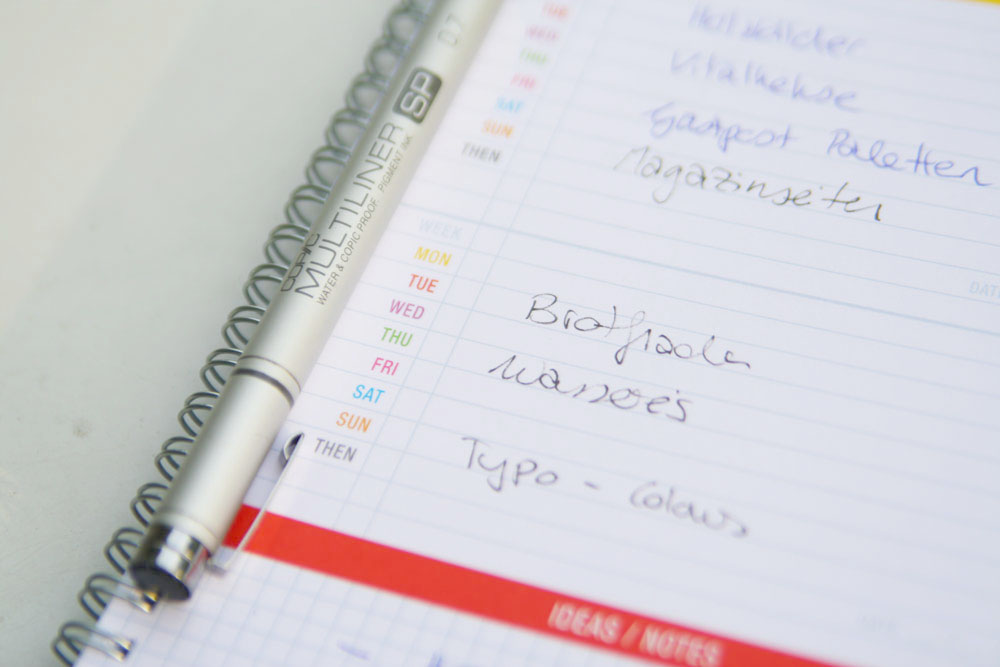 0.7
SP
COPIC
MULTILINER
WATER & COPIC PROOF PIGMENT INK
TUE
WED
THU
FRI
SAT
SUN Gastpost Paletten
THEN Magazinseiten
WEEK
DATE
MON
TUE
WED
THU
FRI Wassereis
SAT
SUN
THEN Typo -
IDEAS / NOTES